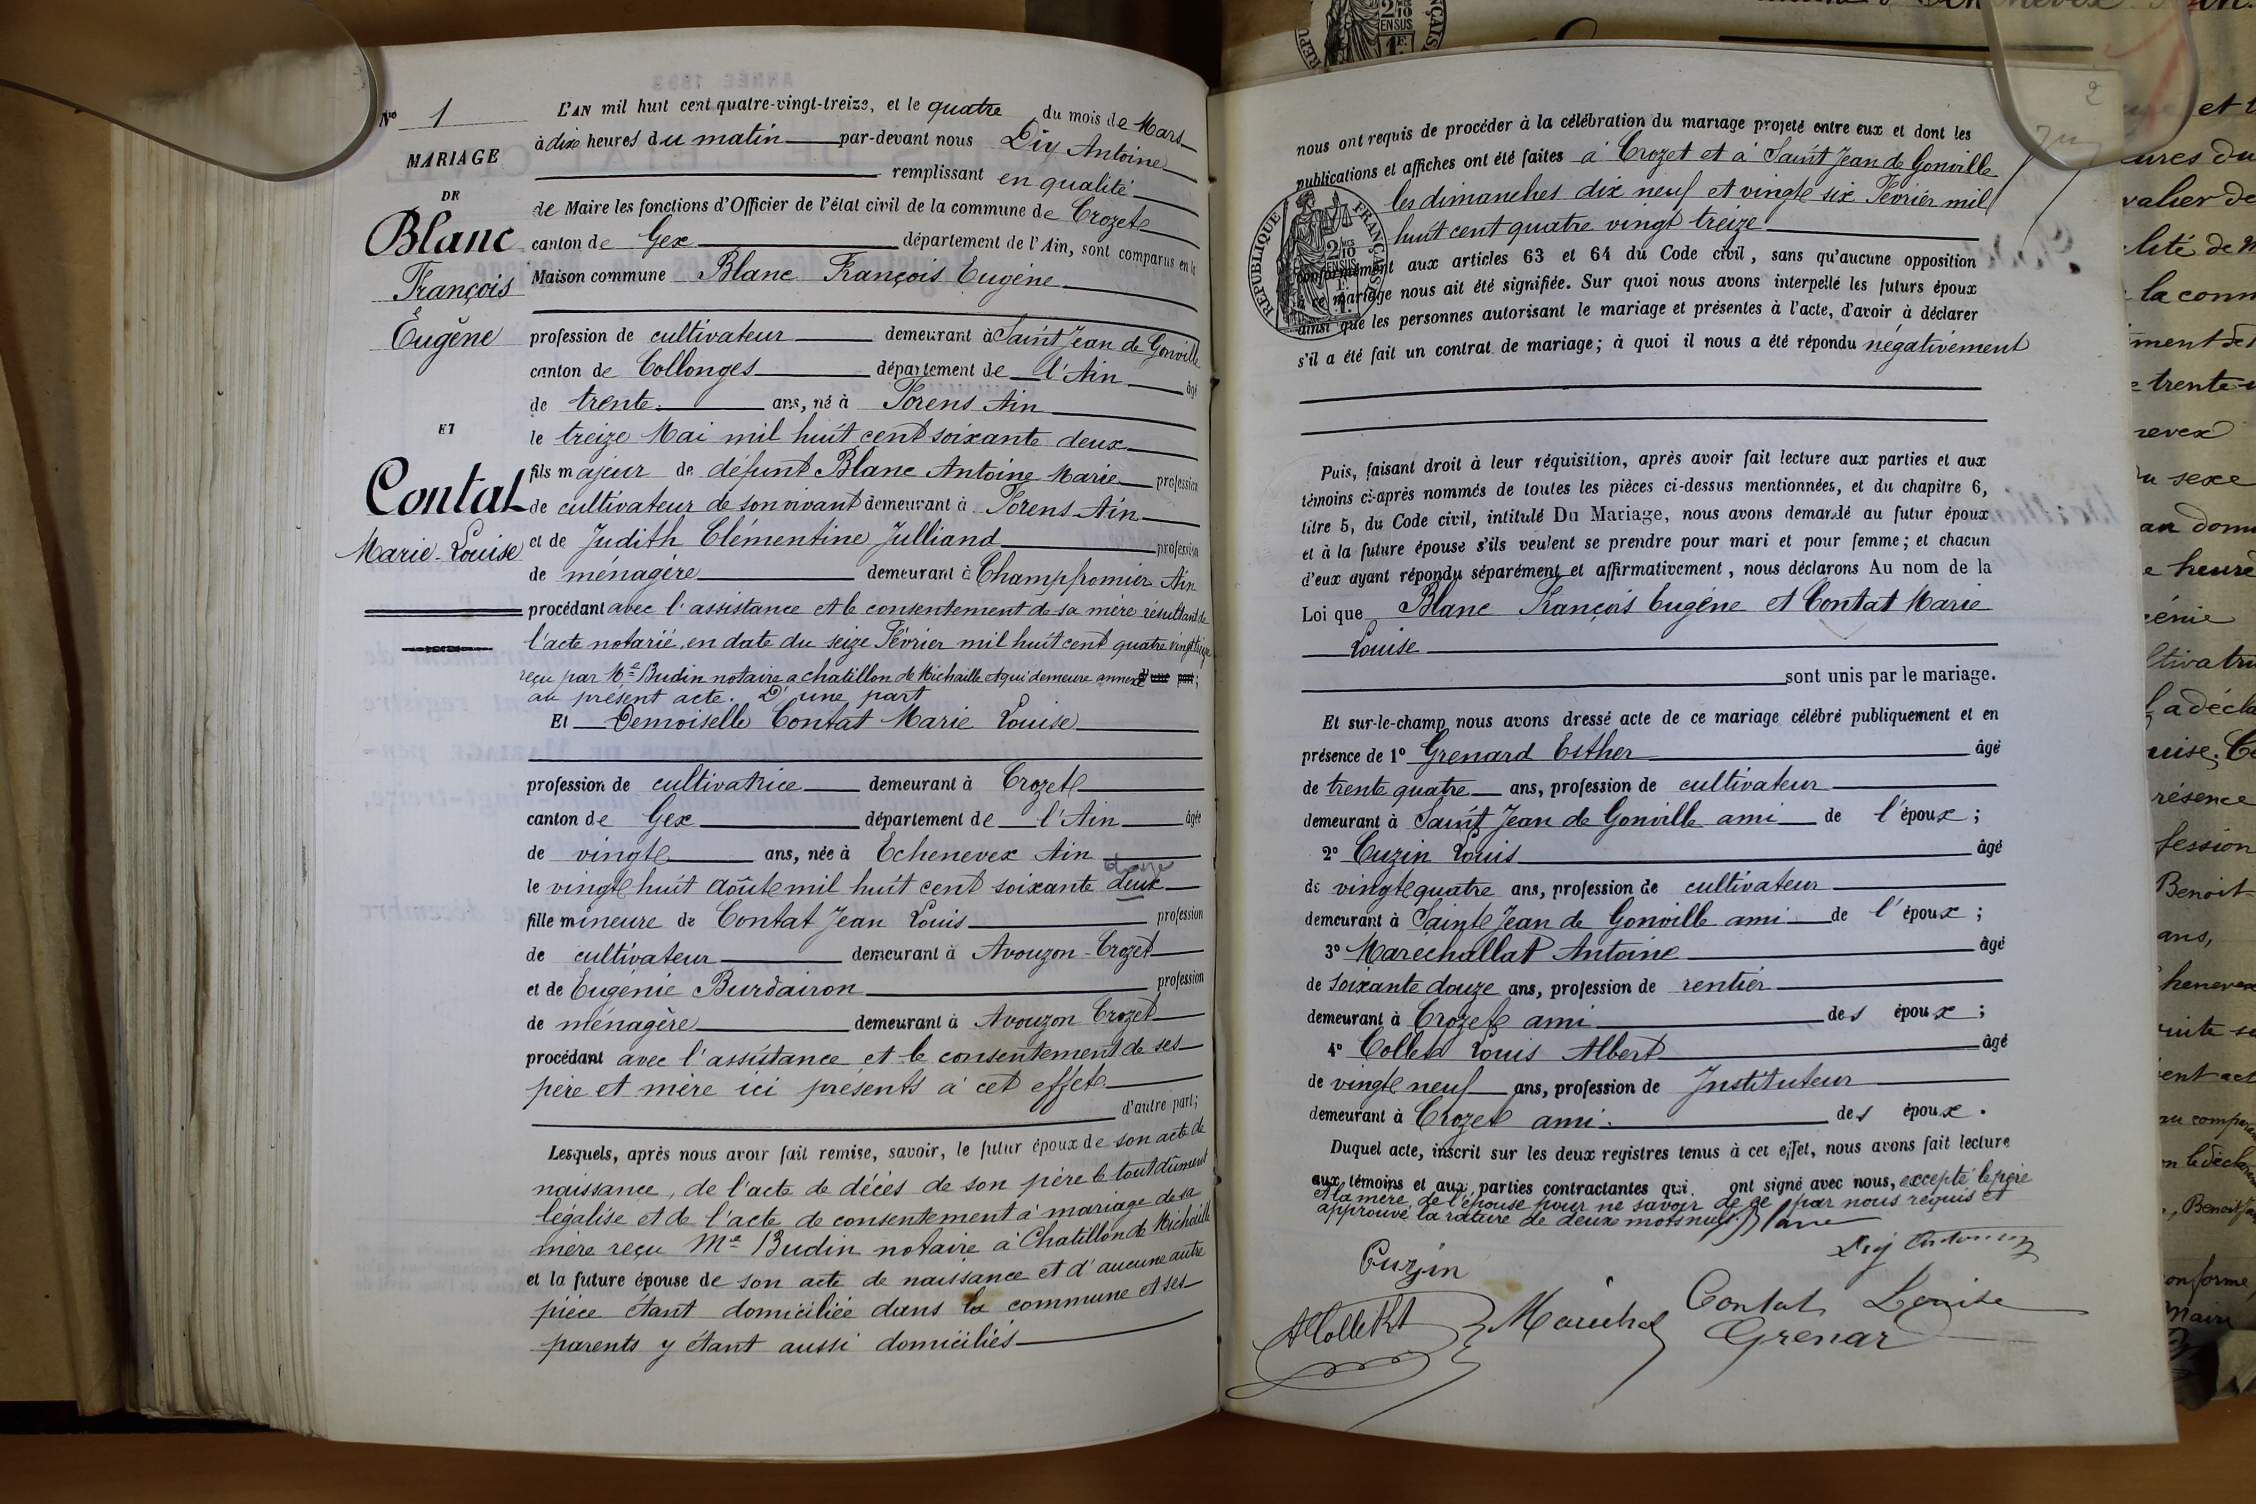 Nº 1
MARIAGE
DE
Blanc
François
Eugène
ET
Contat
Marie-Louise
L'AN mil huit cent quatre-vingt-treize, et le quatre du mois de Mars
à dix heures du matin par-devant nous Diy Antoine
remplissant en qualité
de Maire les fonctions d'Officier de l'état civil de la commune de Crozet
canton de Gex département de l'Ain, sont comparus en la
Maison commune Blanc François Eugène
profession de cultivateur demeurant à Saint Jean de Gonville
canton de Collonges département de l'Ain âgé
de trente ans, né à Forens Ain
le treize Mai mil huit cent soixante deux
fils majeur de défunt Blanc Antoine Marie profession
de cultivateur de son vivant demeurant à Forens Ain
et de Judith Clémentine Julliand profession
de ménagère demeurant à Champfromier Ain
procédant avec l'assistance et le consentement de sa mère résultant de
l'acte notarié en date du seize Février mil huit cent quatre vingt treize
reçu par Me Budin notaire a chatillon de Michaille et qui demeure annexé d'une part;
au présent acte. D'une part
Et Demoiselle Contat Marie Louise
profession de cultivatrice demeurant à Crozet
canton de Gex département de l'Ain âgée
de vingt ans, née à Echenevex Ain
le vingt huit août mil huit cent soixante deux douze
fille mineure de Contat Jean Louis profession
de cultivateur demeurant à Avouzon-Crozet
et de Eugénie Burdairon profession
de ménagère demeurant à Avouzon Crozet
procédant avec l'assistance et le consentement de ses
père et mère ici présents à cet effet
d'autre part;
Lesquels, après nous avoir fait remise, savoir, le futur époux de son acte de
naissance, de l'acte de décès de son père le tout dûment
légalisé et de l'acte de consentement à mariage de sa
mère reçu Me Budin notaire à Chatillon de Michaille
et la future épouse de son acte de naissance et d'aucune autre
pièce étant domiciliée dans la commune et ses
parents y étant aussi domiciliés
2
nous ont requis de procéder à la célébration du mariage projeté entre eux et dont les
publications et affiches ont été faites à Crozet et à Saint Jean de Gonville
les dimanches dix neuf et vingt six Février mil
huit cent quatre vingt treize
conformément aux articles 63 et 64 du Code civil, sans qu'aucune opposition
à ce mariage nous ait été signifiée. Sur quoi nous avons interpellé les futurs époux
ainsi que les personnes autorisant le mariage et présentes à l'acte, d'avoir à déclarer
s'il a été fait un contrat de mariage; à quoi il nous a été répondu négativement
RÉPUBLIQUE FRANÇAISE
Puis, faisant droit à leur réquisition, après avoir fait lecture aux parties et aux
témoins ci-après nommés de toutes les pièces ci-dessus mentionnées, et du chapitre 6,
titre 5, du Code civil, intitulé Du Mariage, nous avons demandé au futur époux
et à la future épouse s'ils veulent se prendre pour mari et pour femme; et chacun
d'eux ayant répondu séparément et affirmativement, nous déclarons Au nom de la
Loi que Blanc François Eugène et Contat Marie
Louise
sont unis par le mariage.
Et sur-le-champ nous avons dressé acte de ce mariage célébré publiquement et en
présence de 1º Grenard Esther âgé
de trente quatre ans, profession de cultivateur
demeurant à Saint Jean de Gonville ami de l'époux;
2º Cuzin Louis âgé
de vingt quatre ans, profession de cultivateur
demeurant à Saint Jean de Gonville ami de l'époux;
3º Maréchallat Antoine âgé
de soixante douze ans, profession de rentier
demeurant à Crozet ami des époux;
4º Collet Louis Albert âgé
de vingt neuf ans, profession de Instituteur
demeurant à Crozet ami. des époux.
Duquel acte, inscrit sur les deux registres tenus à cet effet, nous avons fait lecture
aux témoins et aux parties contractantes qui ont signé avec nous, excepté le père
et la mère de l'épouse pour ne savoir de ce par nous requis et
approuvé la rature de deux mots nuls. Blanc
Cuzin
Diy Antoine
Contat Louise
Maréchal
Grenar